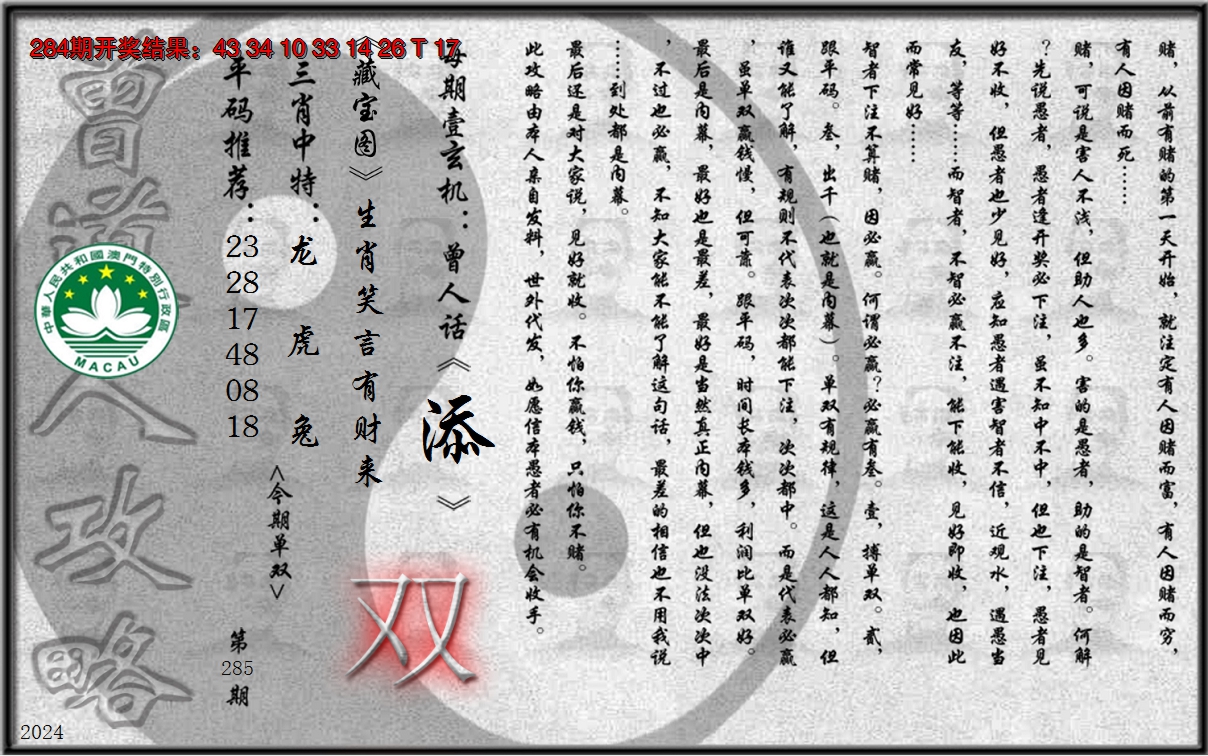 284期开奖结果：43 34 10 33 14 26 T 17
赌，从前有赌的第一天开始，就注定有人因赌而富，有人因赌而穷，
有人因赌而死……
赌，可说是害人不浅，但助人也多。害的是愚者，助的是智者。何解
？先说愚者，愚者逢开奖必下注，虽不知中不中，但也下注，愚者见
好不收，但愚者也少见好，应知愚者遇害智者不信，近观水，遇愚当
友，等等……而智者，不智必赢不注，能下能收，见好即收，也因此
而常见好……
智者下注不算赌，因必赢。何谓必赢？必赢有叁。壹，搏单双。贰，
跟平码。叁，出千（也就是内幕）。单双有规律，这是人人都知，但
谁又能了解，有规则不代表次次都能下注，次次都中。而是代表必赢
，虽单双赢钱慢，但可靠。跟平码，时间长本钱多，利润比单双好。
最后是内幕，最好也是最差，最好是当然真正内幕，但也没法次次中
，不过也必赢，不知大家能不能了解这句话，最差的相信也不用我说
……到处都是内幕。
最后还是对大家说，见好就收。不怕你赢钱，只怕你不赌。
此攻略由本人亲自发料，世外代发，如愿信本愚者必有机会收手。
每期壹玄机：曾人话《添》
《藏宝图》生肖笑言有财来
双
三肖中特：龙 虎 兔
<今期单双>
平码推荐：
23
28
17
48
08
18
第
285
期
曾道人攻略
中華人民共和國澳門特別行政區
MACAU
2024